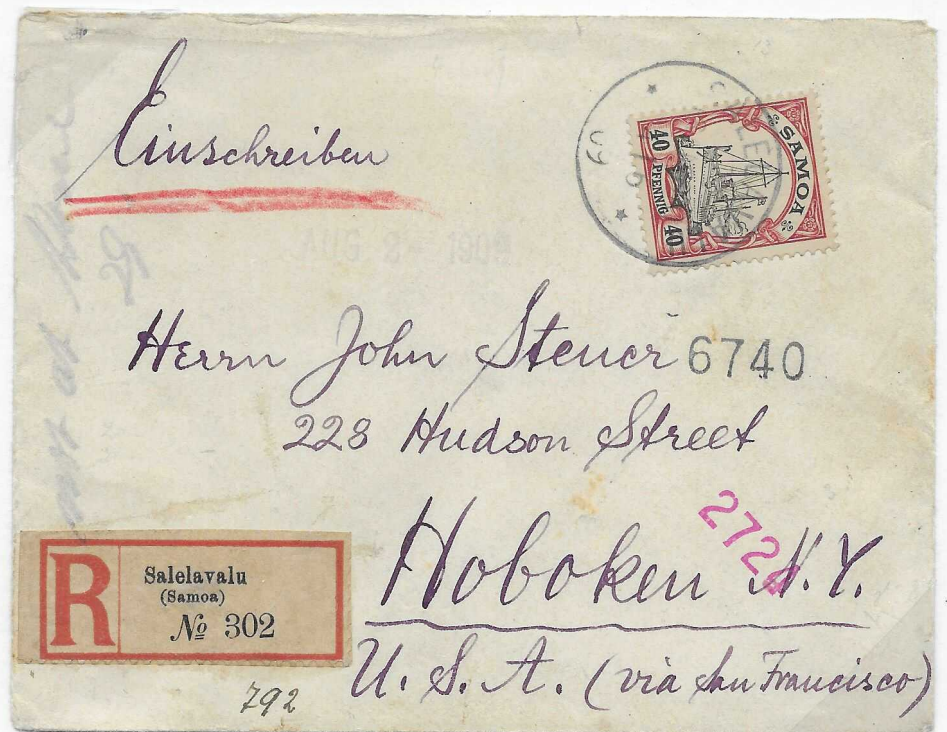 Einschreiben
SAMOA
40 PFENNIG 40
09
AUG 2 1909
Herrn John Steuer 6740
228 Hudson Street
2724
Hoboken N.Y.
U. S. A. (via San Francisco)
R
Salelavalu
(Samoa)
№ 302
792
not at Home